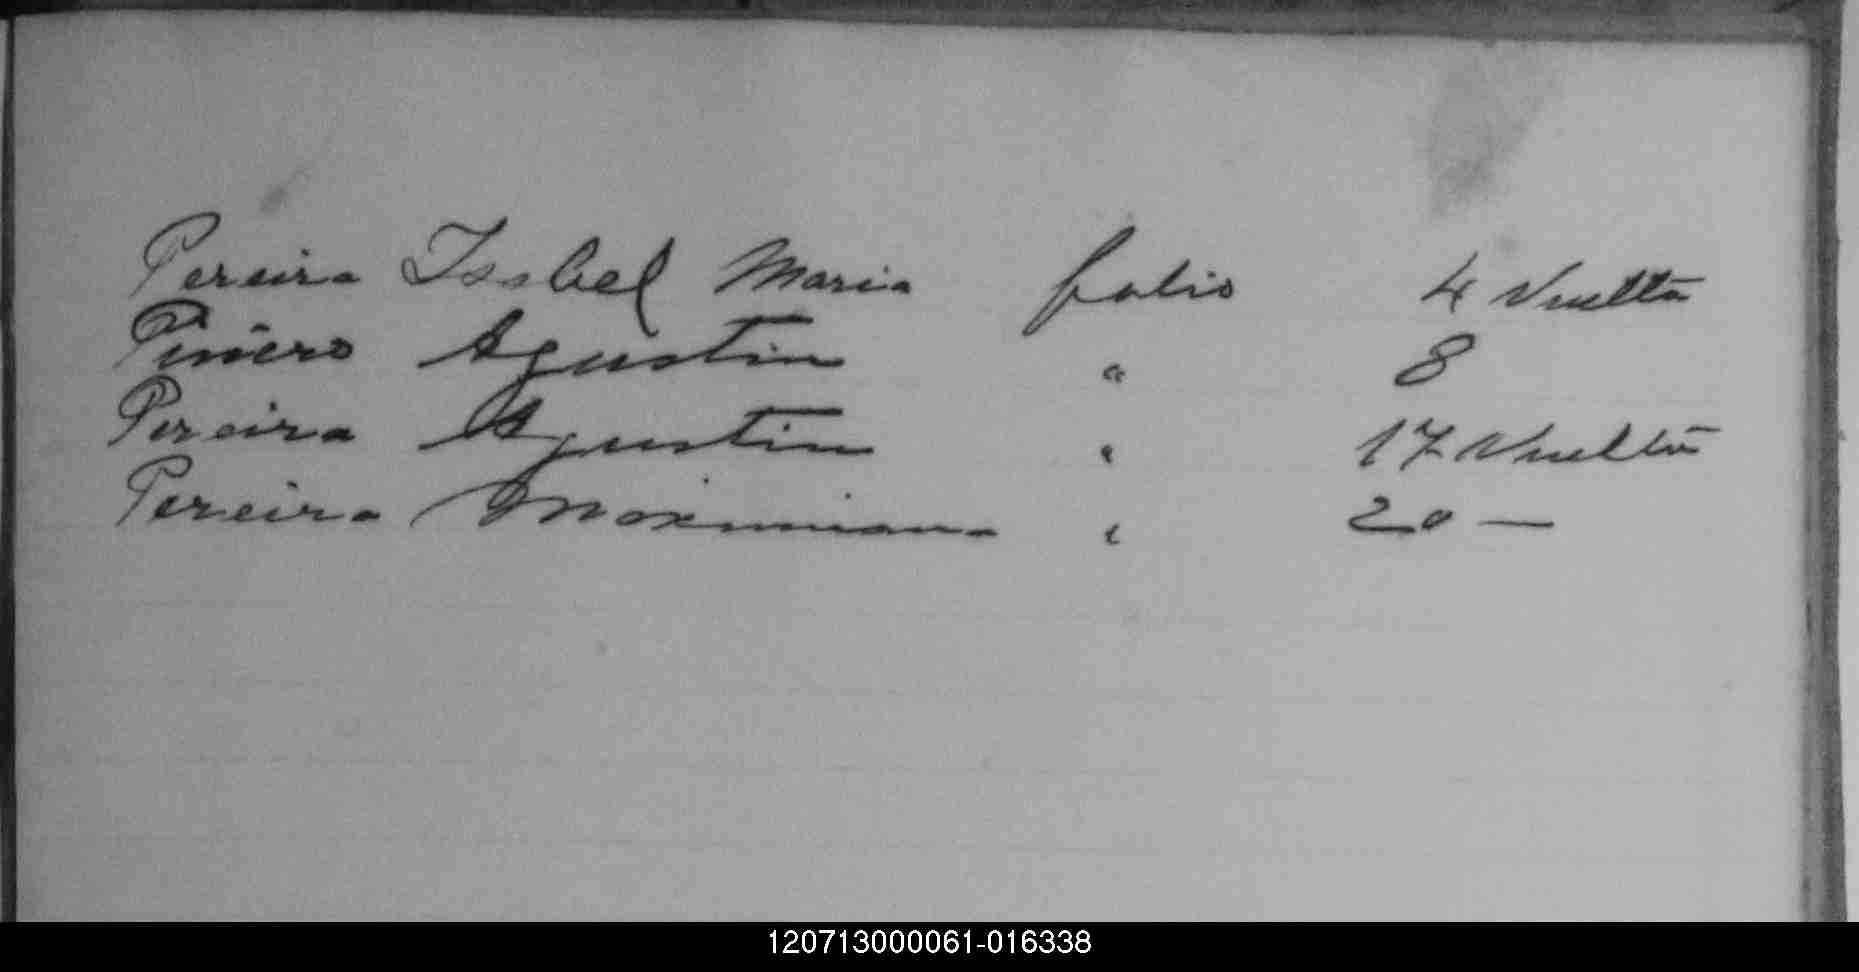 Pereira Isabel Maria folio 4 Vuelta
Piñero Agustin " 8
Pereira Agustin " 17 Vuelta
Pereira Maximiana " 20 —
120713000061-016338